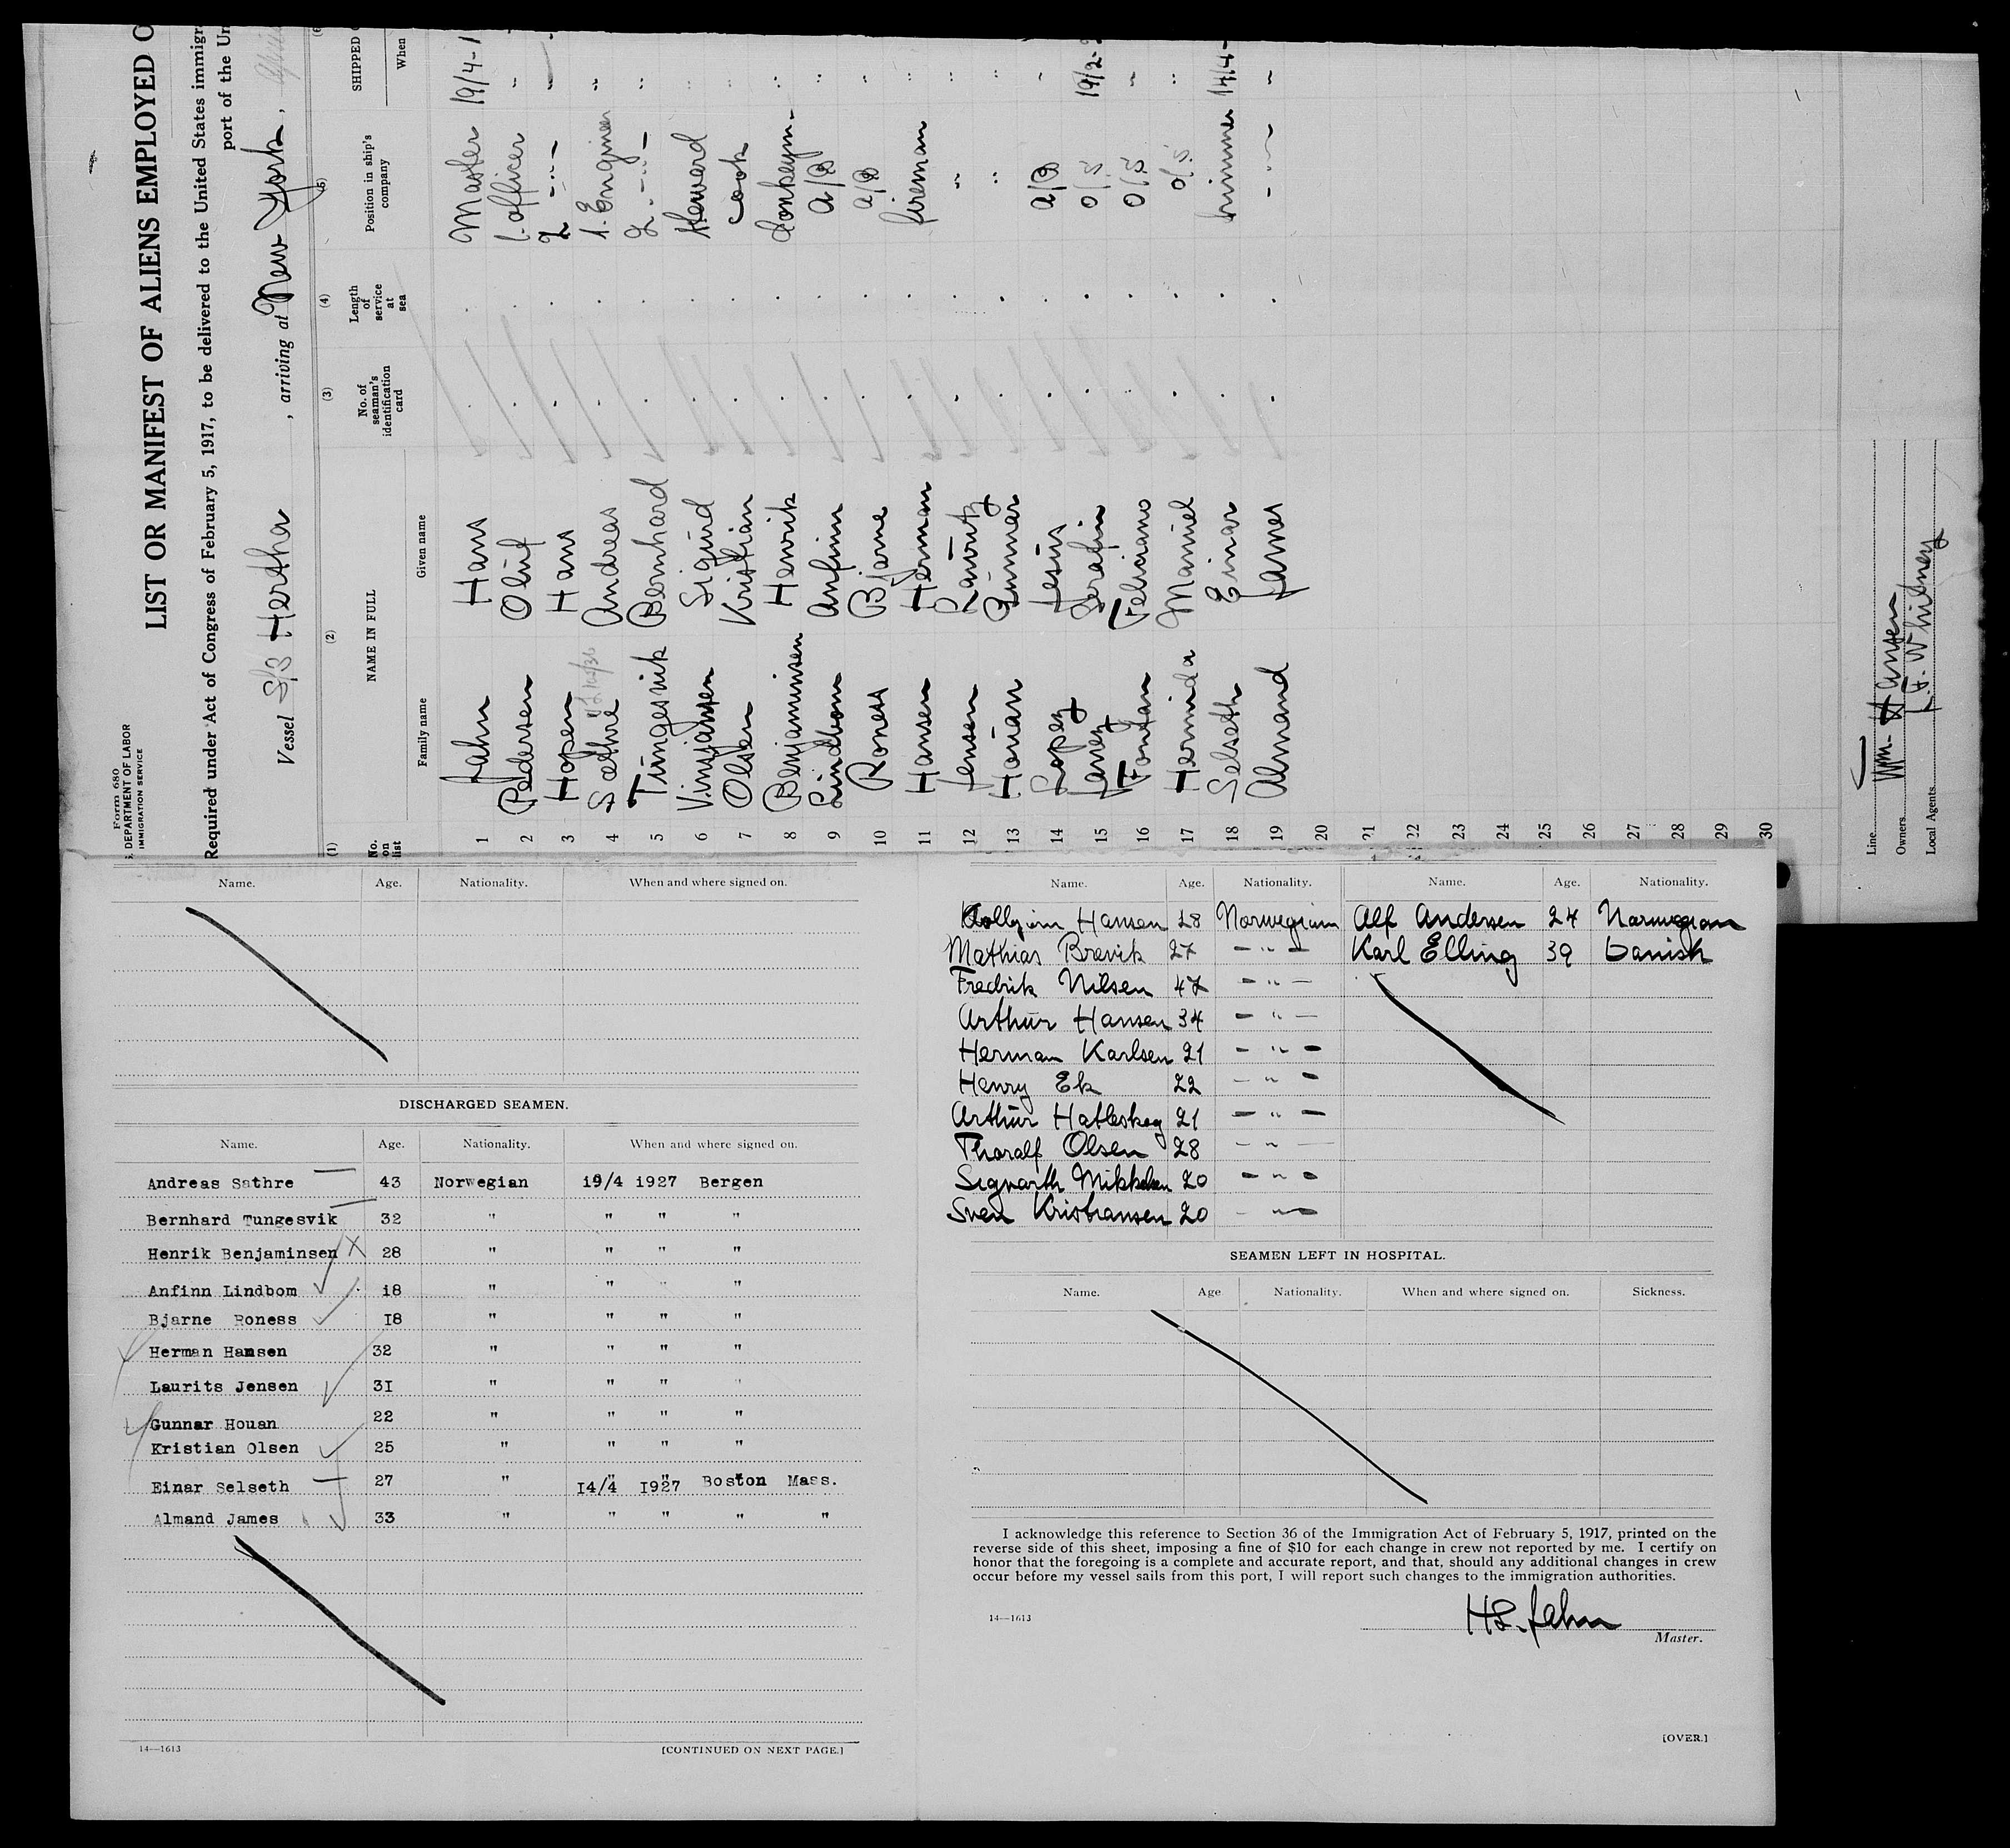 Form 680
DEPARTMENT OF LABOR
IMMIGRATION SERVICE
LIST OR MANIFEST OF ALIENS EMPLOYED O
Required under Act of Congress of February 5, 1917, to be delivered to the United States immigr
port of the Un
Vessel S/S Hertha, arriving at New York,
(1) (2) (3) (4) (5)
No. on list
NAME IN FULL
Family name Given name
No. of seaman's identification card
Length of service at sea
Position in ship's company
SHIPPED O
When
1 Jahn Hans Master 19/4-1
2 Pedersen Oluf 1. officer "
3 Hopen Hans 2 -"- "
4 Sæthre Andreas 1. Engineer "
5 Tungesvik Bernhard 2. -"- "
6 Vinsjansen Sigurd Steward "
7 Olsen Kristian cook "
8 Benjaminsen Henrik donkeym- "
9 Lindbom Anfinn A/B "
10 Roness Bjarne A/B "
11 Hansen Herman fireman "
12 Jensen Lauritz " "
13 Houan Gunnar " "
14 Lopez Jesus A/B "
15 Serafin O/S 19/2-
16 Fontan Feliciano O/S "
17 Herminda Manuel O/S "
18 Selseth Einar trimmer 14/4-
19 Almand James -"- "
20
21
22
23
24
25
26
27
28
29
30
Line
Owners Wm. H Ansen
Local Agents J. F. Whitney
Name. Age. Nationality. When and where signed on.
DISCHARGED SEAMEN.
Name. Age. Nationality. When and where signed on.
Andreas Sathre 43 Norwegian 19/4 1927 Bergen
Bernhard Tungesvik 32 " " " "
Henrik Benjaminsen 28 " " " "
Anfinn Lindbom 18 " " " "
Bjarne Roness 18 " " " "
Herman Hansen 32 " " " "
Laurits Jensen 31 " " " "
Gunnar Houan 22 " " " "
Kristian Olsen 25 " " " "
Einar Selseth 27 " 14/4 1927 Boston Mass.
Almand James 33 " " " " "
14—1613 [CONTINUED ON NEXT PAGE.]
Name. Age. Nationality. Name. Age. Nationality.
Hansen 28 Norwegian Alf Andersen 24 Norwegian
Mathias Brevik 27 - " - Karl Elling 39 Danish
Fredrik Nilsen 47 - " -
Arthur Hansen 34 - " -
Herman Karlsen 21 - " -
Henry Ek 22 - " -
Arthur Hatleskog 21 - " -
Tharalf Olsen 28 - " -
Sigvarth Mikkelsen 20 - " -
Sven Kristiansen 20 - " -
SEAMEN LEFT IN HOSPITAL.
Name. Age Nationality. When and where signed on. Sickness.
I acknowledge this reference to Section 36 of the Immigration Act of February 5, 1917, printed on the
reverse side of this sheet, imposing a fine of $10 for each change in crew not reported by me. I certify on
honor that the foregoing is a complete and accurate report, and that, should any additional changes in crew
occur before my vessel sails from this port, I will report such changes to the immigration authorities.
14—1613
HL. Jahn
Master.
[OVER.]